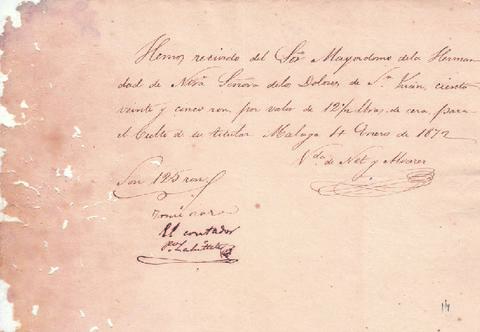 Hemos recivido del Sor Mayordomo de la Herman
dad de Ntra Señora de los Dolores de Sn Juan, ciento
veinte y cinco rvn. por valor de 12½ lbras. de cera para
el Culto de su titular Malaga 14 Enero de 1872
Vda de Net y Alvarez
Son 125 rvn.
Tomé razon
El contador
14